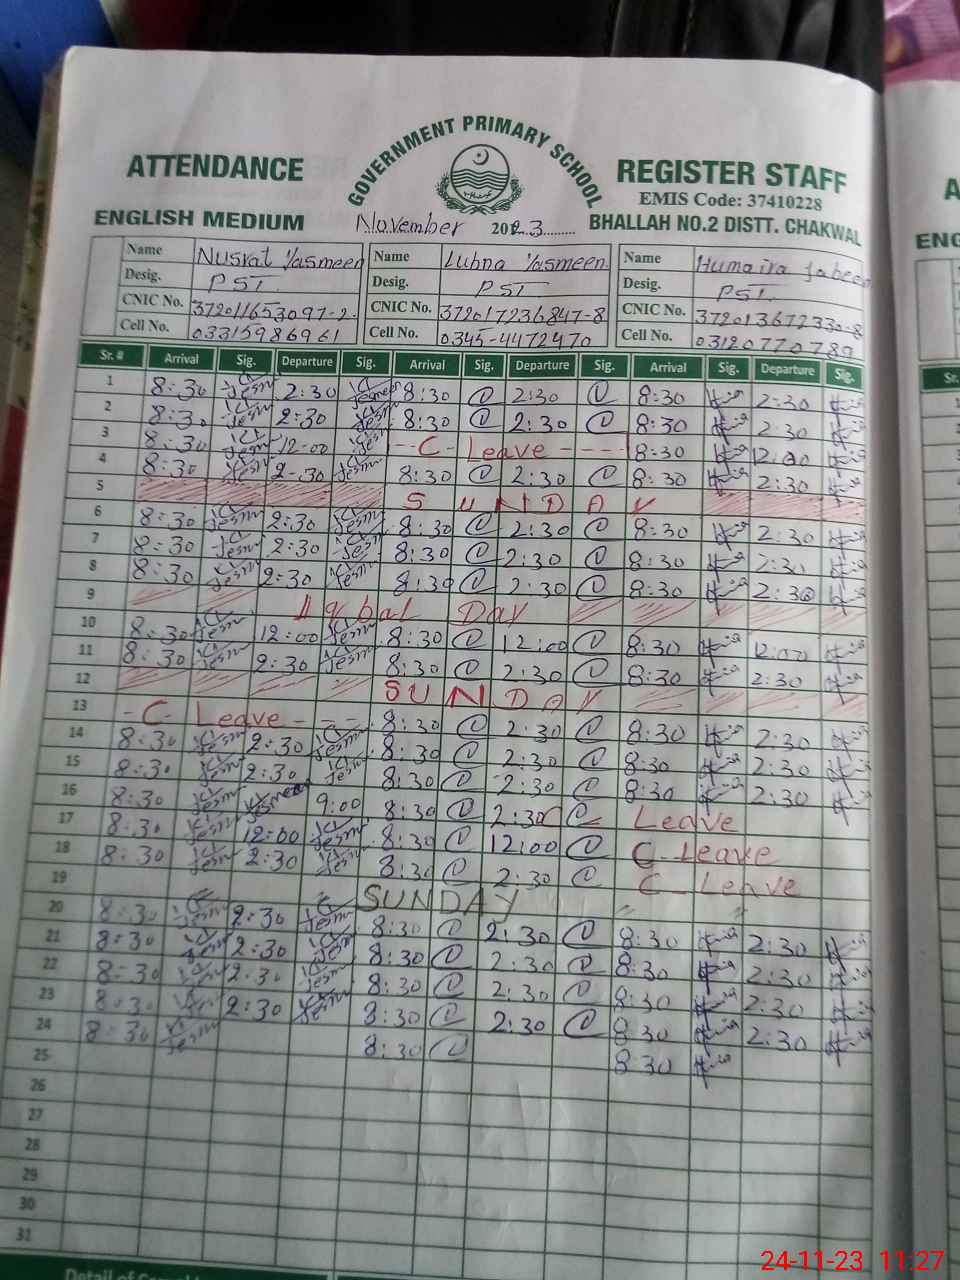 GOVERNMENT PRIMARY SCHOOL
ATTENDANCE REGISTER STAFF
EMIS Code: 37410228
ENGLISH MEDIUM November 2023 BHALLAH NO.2 DISTT. CHAKWAL
Name Nusrat Yasmeen Name Lubna Yasmeen Name Humaira Jabeen
Desig. PST Desig. PST Desig. PST
CNIC No. 372011653097-2 CNIC No. 372017236847-8 CNIC No. 372013672330-8
Cell No. 03315986961 Cell No. 0345-4472470 Cell No. 03120770789
Sr. # Arrival Sig. Departure Sig. Arrival Sig. Departure Sig. Arrival Sig. Departure Sig.
1 8:30 2:30 8:30 2:30 8:30 2:30
2 8:30 2:30 8:30 2:30 8:30 2:30
3 8:30 12:00 --C- Leave---- 8:30 12:00
4 8:30 2:30 8:30 2:30 8:30 2:30
5 SUNDAY
6 8:30 2:30 8:30 2:30 8:30 2:30
7 8:30 2:30 8:30 2:30 8:30 2:30
8 8:30 2:30 8:30 2:30 8:30 2:30
9 Iqbal Day
10 8:30 12:00 8:30 12:00 8:30 12:00
11 8:30 2:30 8:30 2:30 8:30 2:30
12 SUNDAY
13 -C- Leave--- 8:30 2:30 8:30 2:30
14 8:30 2:30 8:30 2:30 8:30 2:30
15 8:30 2:30 8:30 2:30 8:30 2:30
16 8:30 9:00 8:30 2:30 C Leave
17 8:30 12:00 8:30 12:00 C-Leave
18 8:30 2:30 8:30 2:30 C-Leave
19 SUNDAY
20 8:30 2:30 8:30 2:30 8:30 2:30
21 8:30 2:30 8:30 2:30 8:30 2:30
22 8:30 2:30 8:30 2:30 8:30 2:30
23 8:30 2:30 8:30 2:30 8:30 2:30
24 8:30 8:30 8:30
25
26
27
28
29
30
31
24-11-23 11:27